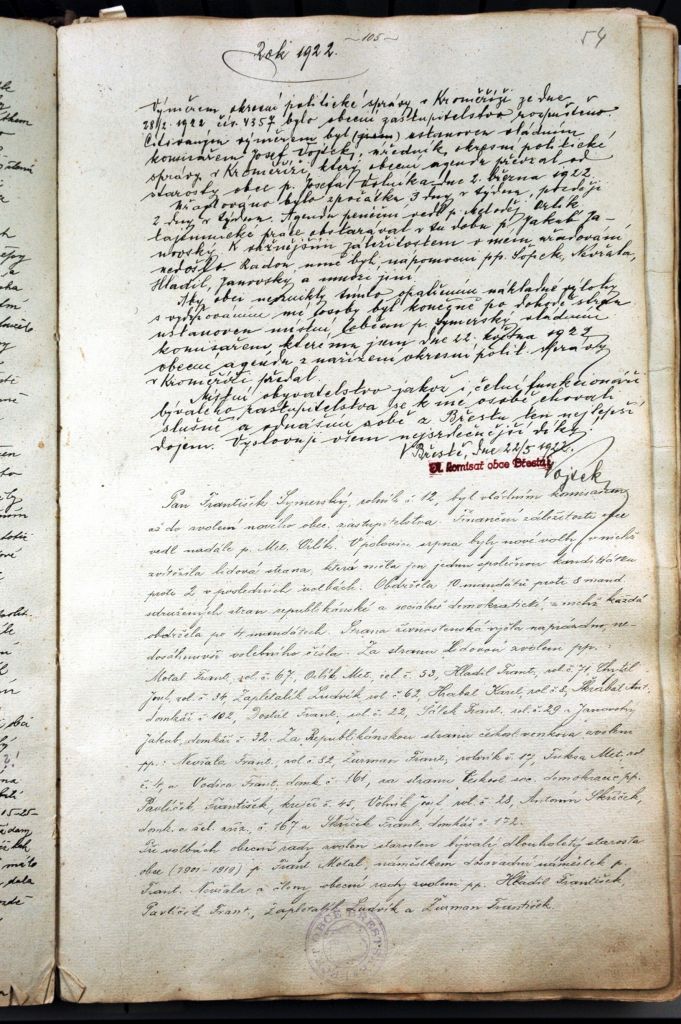 ~105~
54
Rok 1922.
Výměrem okresní politické správy v Kroměříži ze dne
28/2. 1922 čís. 4357 bylo obecní zastupitelstvo rozpuštěno.
Citovaným výměrem byl ustanoven vládním
komisařem Josef Vojtek, úředník okresní politické
správy v Kroměříži, který obecní agendu převzal od
starosty obce p. Josefa Volníka, dne 2. března 1922.
Úřadováno bylo zpočátku 3 dny v týdnu, později
2 dny v týdnu. Agendu peněžní vedl p. Metoděj Orlík
tajemnické práce obstarával v tu dobu p. Jakub Ja-
novský. K vážnějším záležitostem v mém úřadování
nedošlo. Radou mně byl nápomocni pp. Nevřala,
Hladil, Janovský a mnozí jiní.
Aby obci nevznikly tímto opatřením nákladné výlohy
s vydržováním mé osoby byl konečně po dohodě stran
ustanoven místní občan p. Symerský vládním
komisařem, kterému jsem dne 22. května 1922
obecní agendu z nařízení okresní polit. správy
v Kroměříži předal.
Místní obyvatelstvo jakož i čelní funkcionáři
bývalého zastupitelstva se k mé osobě chovali
slušně a odnáším sobě z Břestu ten nejlepší
dojem. Vyslovuji všem nejsrdečnější díky.
V Břestě, dne 22/5 1922.
vl. komisař obce Břestu
Vojtek
Pan František Symerský, rolník č. 12, byl vládním komisařem
až do zvolení nového obec. zastupitelstva. Finanční záležitosti obce
vedl nadále p. Met. Orlík. V polovici srpna byly nové volby, v nichž
zvítězila lidová strana, která měla jen jednu společnou kandidátku
proti 2 v posledních volbách. Obdržela 10 mandátů proti 8 mand.
sdružených stran republikánské a sociálně demokratické, z nichž každá
obdržela po 4 mandátech. Strana živnostenská vyšla naprázdno, ne-
dosáhnuvši volebního čísla. Za stranu lidovou zvoleni pp.:
Motal Frant. rol. č. 67, Orlík Met. rol. č. 53, Hladil Frant. rol. č. 71,
Josef, rol. č. 34, Zapletalík Ludvík rol. č. 62, Hrabal Karel, rol. č. 8, Škrabal Ant.
domkář č. 102, Dostál Frant. rol. č. 22, Frant. rol. č. 29 a Janovský
Jakub, domkář č. 32. Za Republikánskou stranu českosl. venkova zvoleni
pp.: Nevřala Frant., rol. č. 52, Žurman Frant., rolník č. 17, Fuksa Met. rol.
č. 4, a Vodica Frant. domk. č. 161, za stranu českosl. soc. demokracie pp.
Pavlíček František, krejčí č. 45, Volník Josef, rol. č. 28, Antonín Skříček,
domk. a žel. zříz. č. 167 a Skříček Frant. domkář č. 172.
Při volbách obecní rady zvolen starostou bývalý dlouholetý starosta
obce (1901-1919) p. Frant. Motal, náměstkem dosavadní náměstek p.
Frant. Nevřala a členy obecní rady zvoleni pp. Hladil František,
Pavlíček Frant., Zapletalík Ludvík a Žurman František.